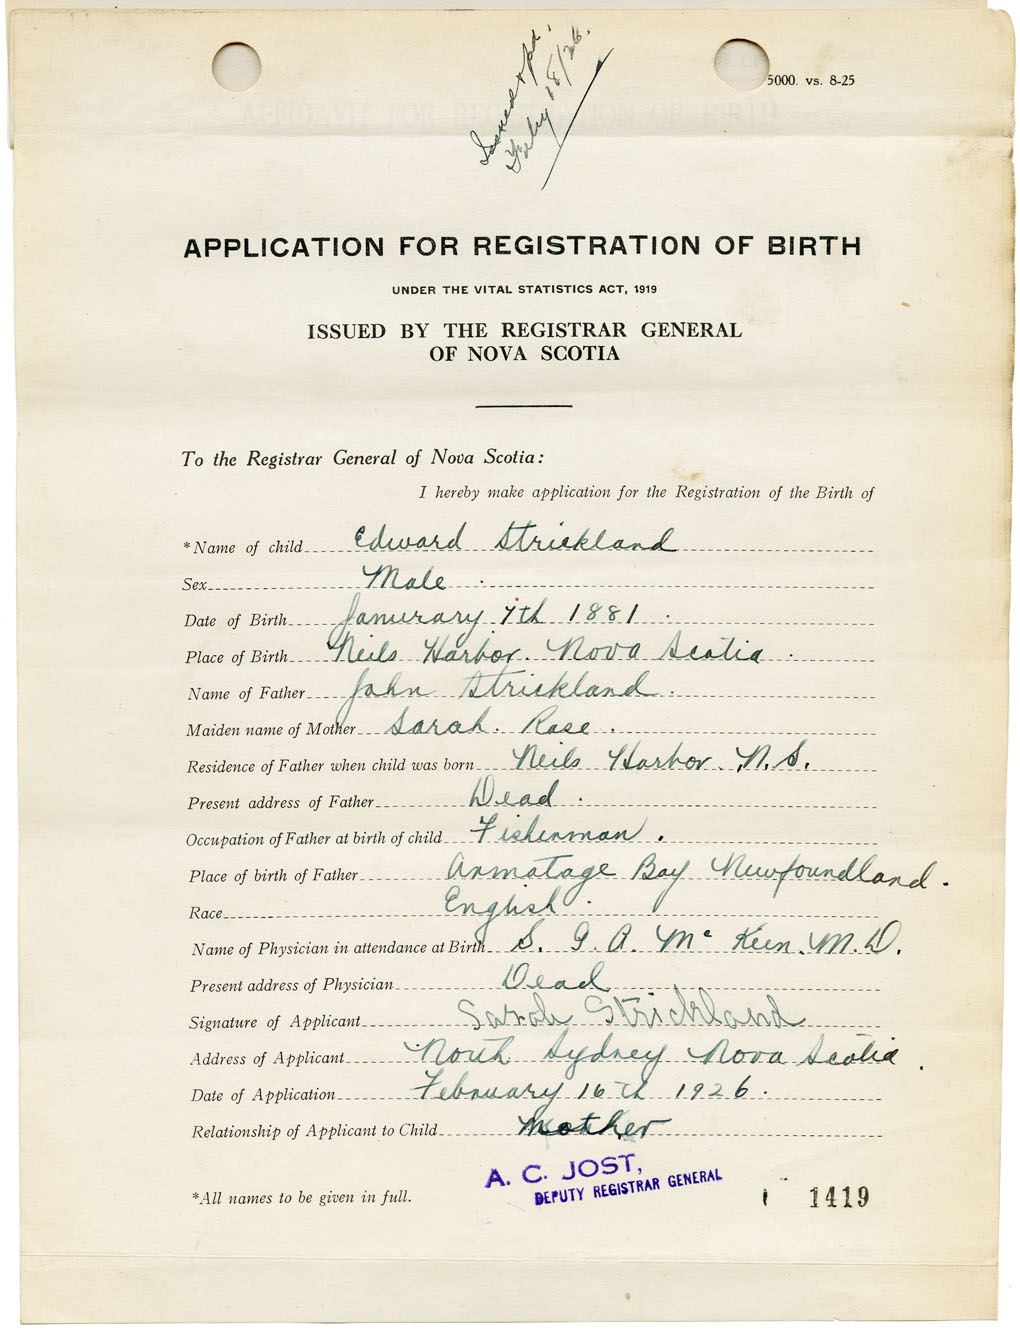 Issued & pd.
Feby 18/26.
5000. vs. 8-25
APPLICATION FOR REGISTRATION OF BIRTH
UNDER THE VITAL STATISTICS ACT, 1919
ISSUED BY THE REGISTRAR GENERAL
OF NOVA SCOTIA
To the Registrar General of Nova Scotia:
I hereby make application for the Registration of the Birth of
*Name of child Edward Strickland
Sex Male
Date of Birth Janurary 7th 1881
Place of Birth Neils Harbor. Nova Scotia
Name of Father John Strickland
Maiden name of Mother Sarah. Rose
Residence of Father when child was born Neils Harbor. N.S.
Present address of Father Dead
Occupation of Father at birth of child Fisherman
Place of birth of Father Armatage Bay Newfoundland
Race English
Name of Physician in attendance at Birth S. G. A. Mc Keen. M.D.
Present address of Physician Dead
Signature of Applicant Sarah Strickland
Address of Applicant North Sydney Nova Scotia
Date of Application February 16th 1926
Relationship of Applicant to Child mother
A. C. JOST,
DEPUTY REGISTRAR GENERAL
*All names to be given in full.
1419